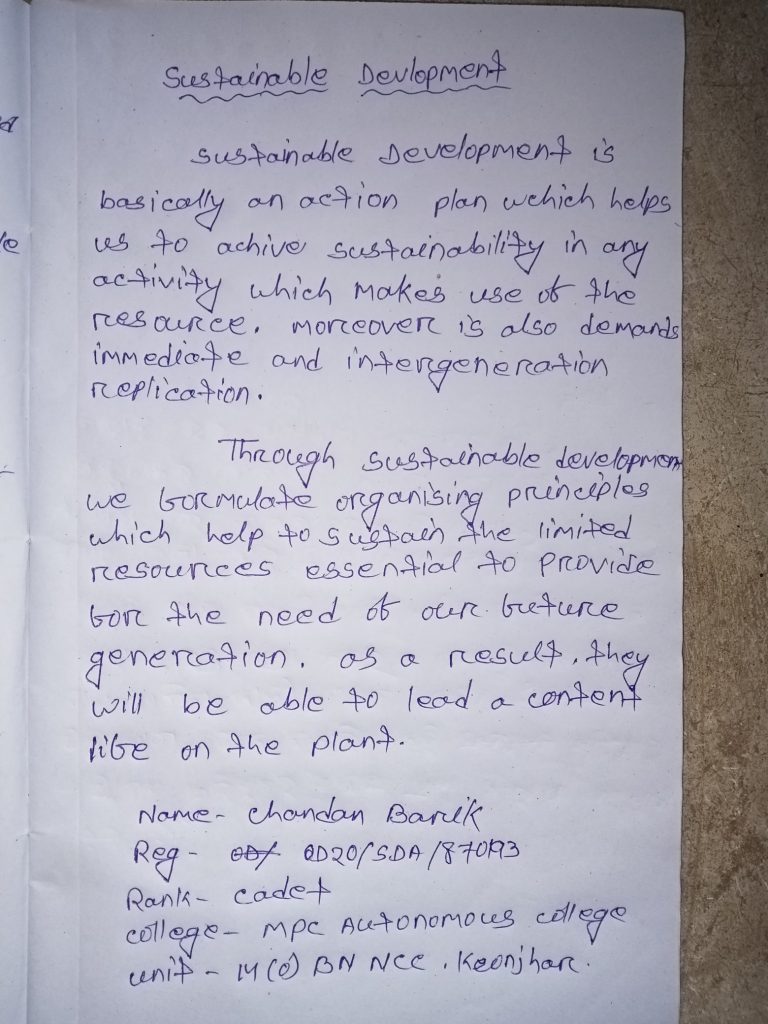 Sustainable Devlopment
Sustainable Development is
basically an action plan which helps
us to achive sustainability in any
activity which makes use of the
resource. moreover is also demands
immediate and intergeneration
replication.
Through sustainable development
we formulate organising principles
which help to sustain the limited
resources essential to provide
for the need of our future
generation. as a result, they
will be able to lead a content
life on the plant.
Name- Chandan Barik
Reg- OD20/SDA/870193
Rank- cadet
college- MPC Autonomous college
unit- 14(O) BN NCC, Keonjhar.